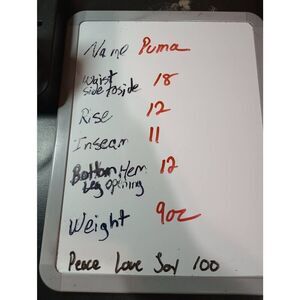 Name Puma
Waist 18
side to side
Rise 12
Inseam 11
Bottom Hem 12
Leg opening
Weight 9oz
Peace Love Joy 100